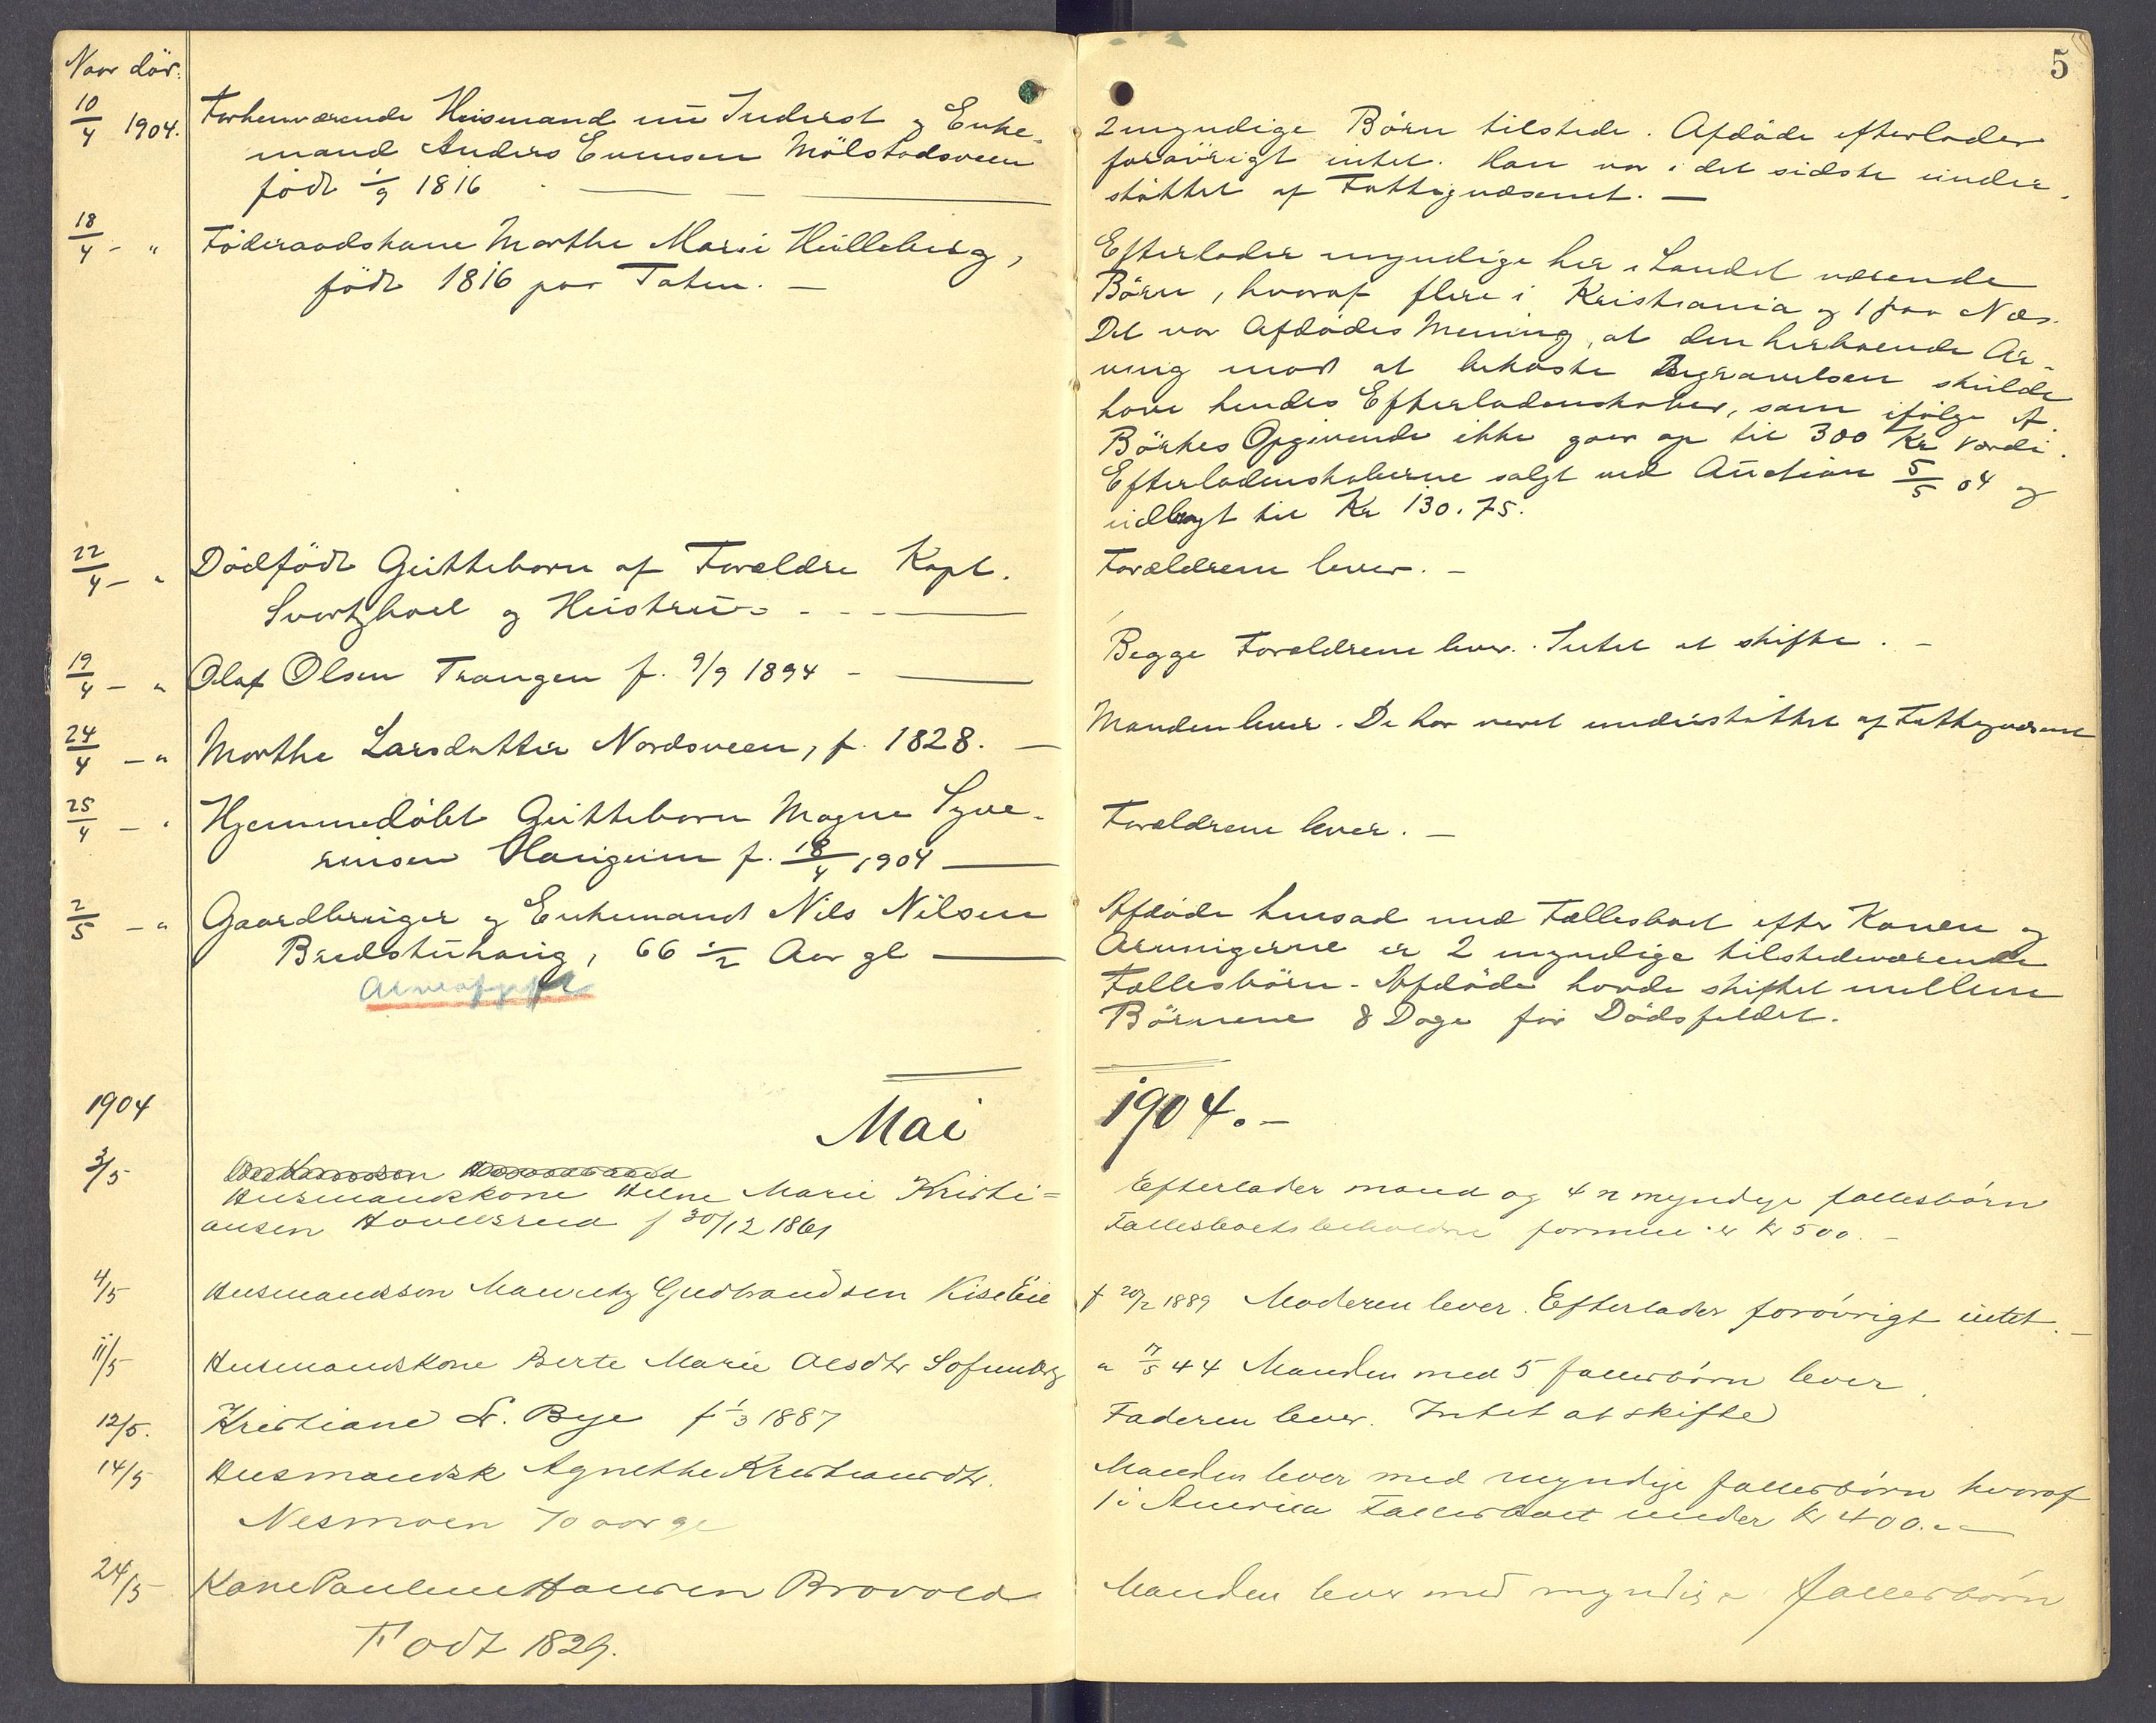 5
Naar død.
10/4 1904.
Forhenværende Husmand nu Inderst og Enke-
mand Anders Evensen Mölstadsveen
född 1/9 1816
2 myndige Börn tilstede. Afdöde efterlader
forövrigt intet. Han var i det sidste under-
stöttet af Fattigvæsenet. —
18/4 - "
Föderaadskone Marthe Marie Hulleberg,
född 1816 paa Toten. —
Efterlader myndige her i Landet værende
Börn, hvoraf flere i Kristiania og 1 paa Næs.
Det var Afdödes Mening, at den herboende Ar-
ving mod at bekoste Begravelsen skulde
have hendes Efterladenskaber, som ifölge
Opgivende ikke gaar op til 300 Kr Værdi.
Efterladenskaberne solgt ved Auction 5/5 04 og
udbragt til Kr 130.75.
22/4 - "
Dödfödt Guttebarn af Forældre Kapt.
Svartzhoel og Hustru
Forældrene lever. —
19/4 - "
Olaf Olsen Trangen f. 9/9 1894 -
Begge Forældrene lever. Intet at skifte. -
24/4 - "
Marthe Larsdatter Nordsveen, f. 1828. —
Manden lever. De har været understöttet af Fattigvæsenet
25/4 - "
Hjemmedöbt Guttebarn Magne Syve-
rinsen Haugeim f. 18/4 1904
Forældrene lever. —
2/5 - "
Gaardbruger og Enkemand Nils Nilsen
Bredstuhaug, 66 1/2 Aar gl
Arveafgift
Afdöde hensad med Fællesboet efter Konen og
Arvingerne er 2 myndige tilstedeværende
Fællesbörn. Afdöde havde skiftet mellem
Börnene 8 Dage för Dödsfaldet.
1904
Mai 1904. —
3/5
Husmandskone Helene Marie Kristi=
ansen Hovelsrud f 30/12 1861
Efterlader mand og 4 umyndige fællesbörn
Fællesboets beholdne formue er kr 500. -
4/5
Husmandssön Mauritz Gudbrandsen Kise Eie
f 20/2 1889 Moderen lever. Efterlader forövrigt intet. -
11/5
Husmandskone Berte Marie Olsdtr
" 17/5 44 Manden med 5 fællesbörn lever.
12/5.
Kristiane L. Bye f 1/3 1887
Faderen lever. Intet at skifte
14/5
Husmandsk Agnethe Kristiansdtr.
Nesmoen 70 aar gl
Manden lever med myndige fællesbörn hvoraf
1 i America Fællesboet under kr 400. —
24/5
Kone Pauline Hansen Brovold
Födt 1829.
Manden lever med myndige fællesbörn